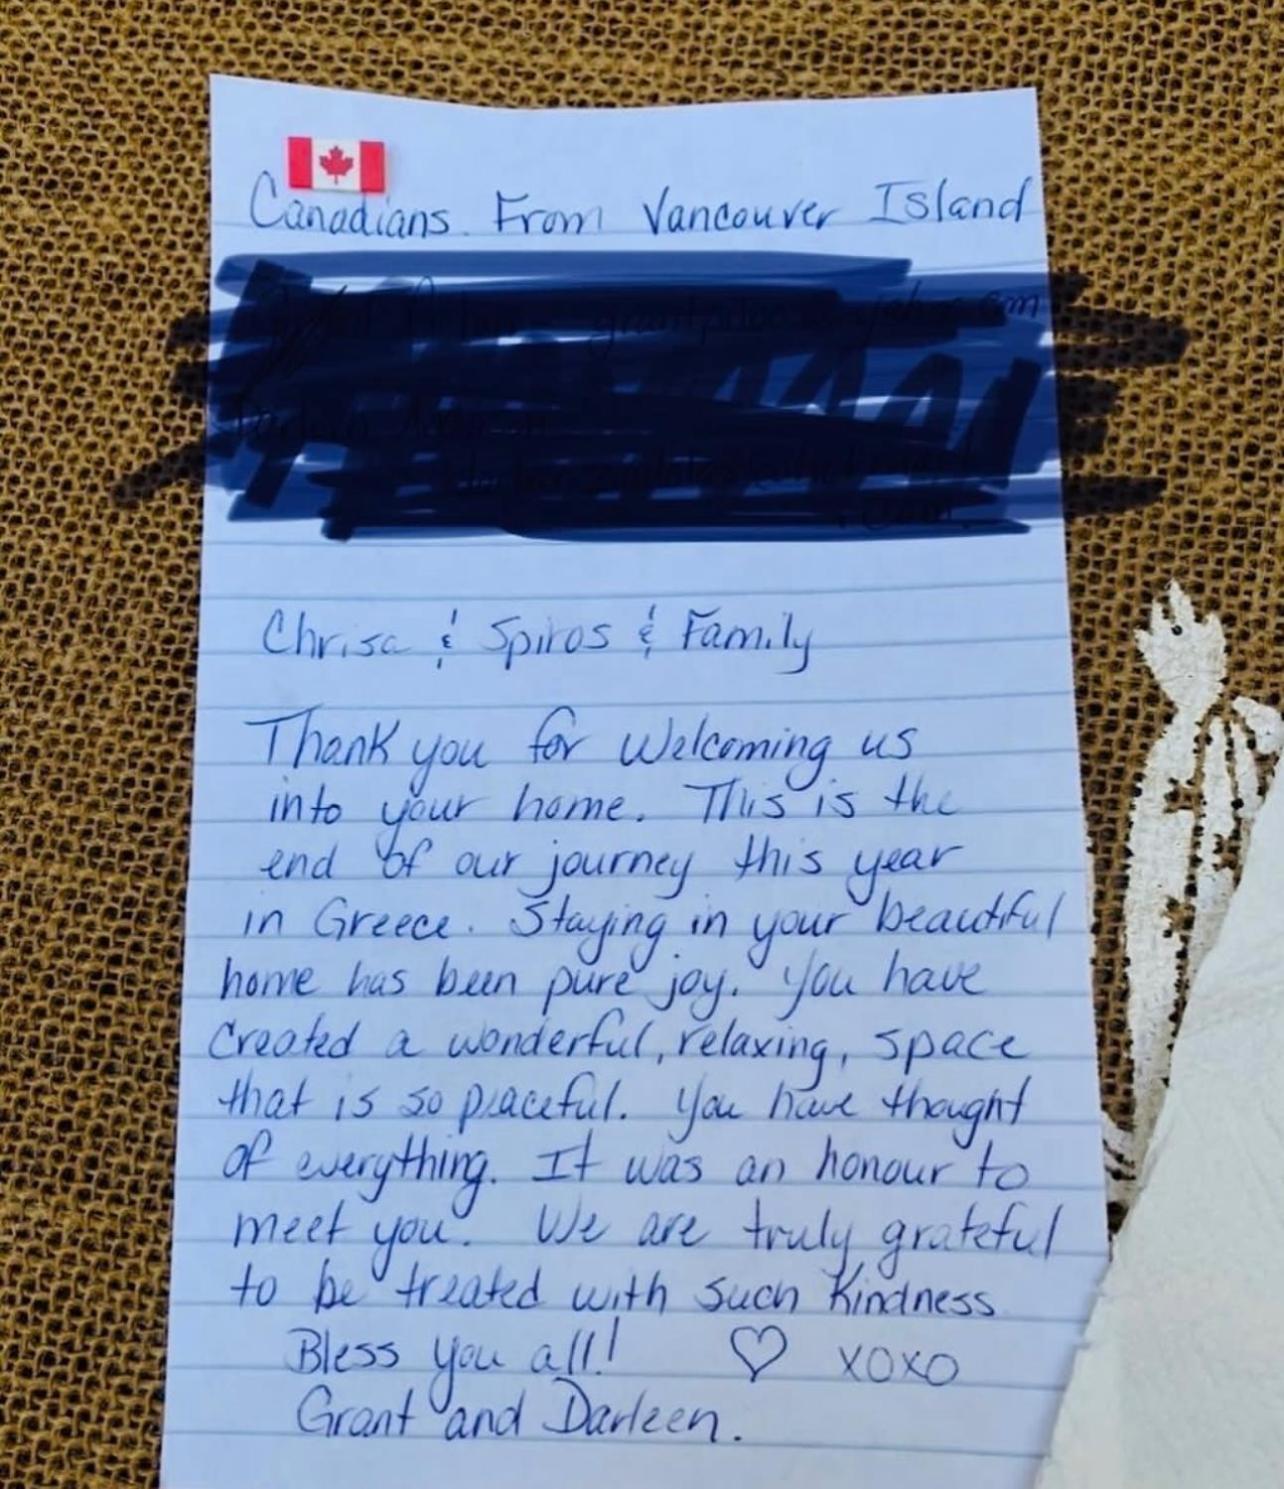 Canadians From Vancouver Island
Chrisa & Spiros & Family
Thank you for Welcoming us
into your home. This is the
end of our journey this year
in Greece. Staying in your beautiful
home has been pure joy. You have
created a wonderful, relaxing, space
that is so peaceful. You have thought
of everything. It was an honour to
meet you. We are truly grateful
to be treated with such kindness
Bless you all! ♡ XOXO
Grant and Darleen.